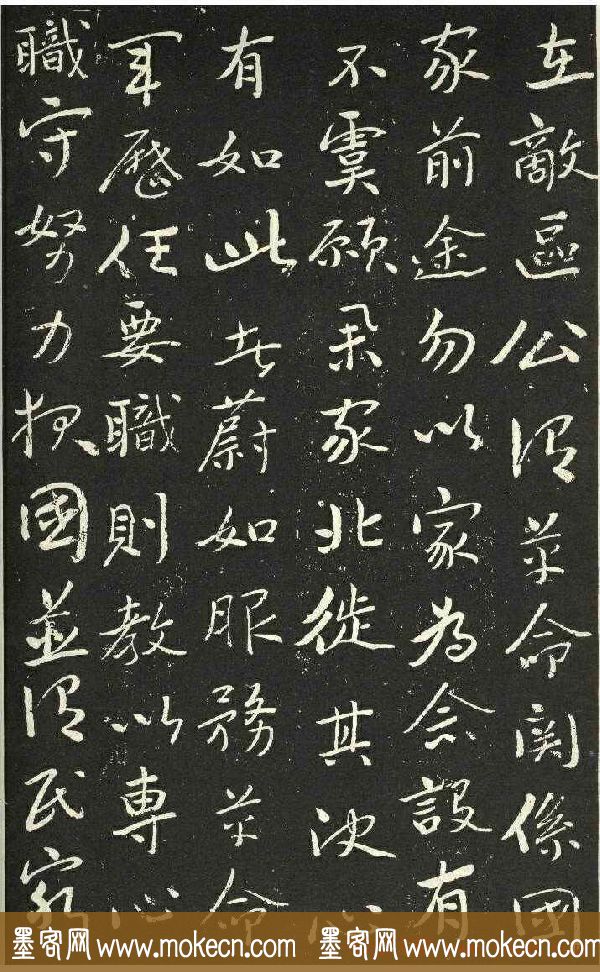 在敵區公謂革命関係國
家前途勿以家為念設有
不虞願舉家北徙其決心
有如此者蔚如服務革命
軍歷任要職則教以專心
職守努力報國並謂民窮
墨客网 www.mokecn.com 墨客网 www.mokecn.com